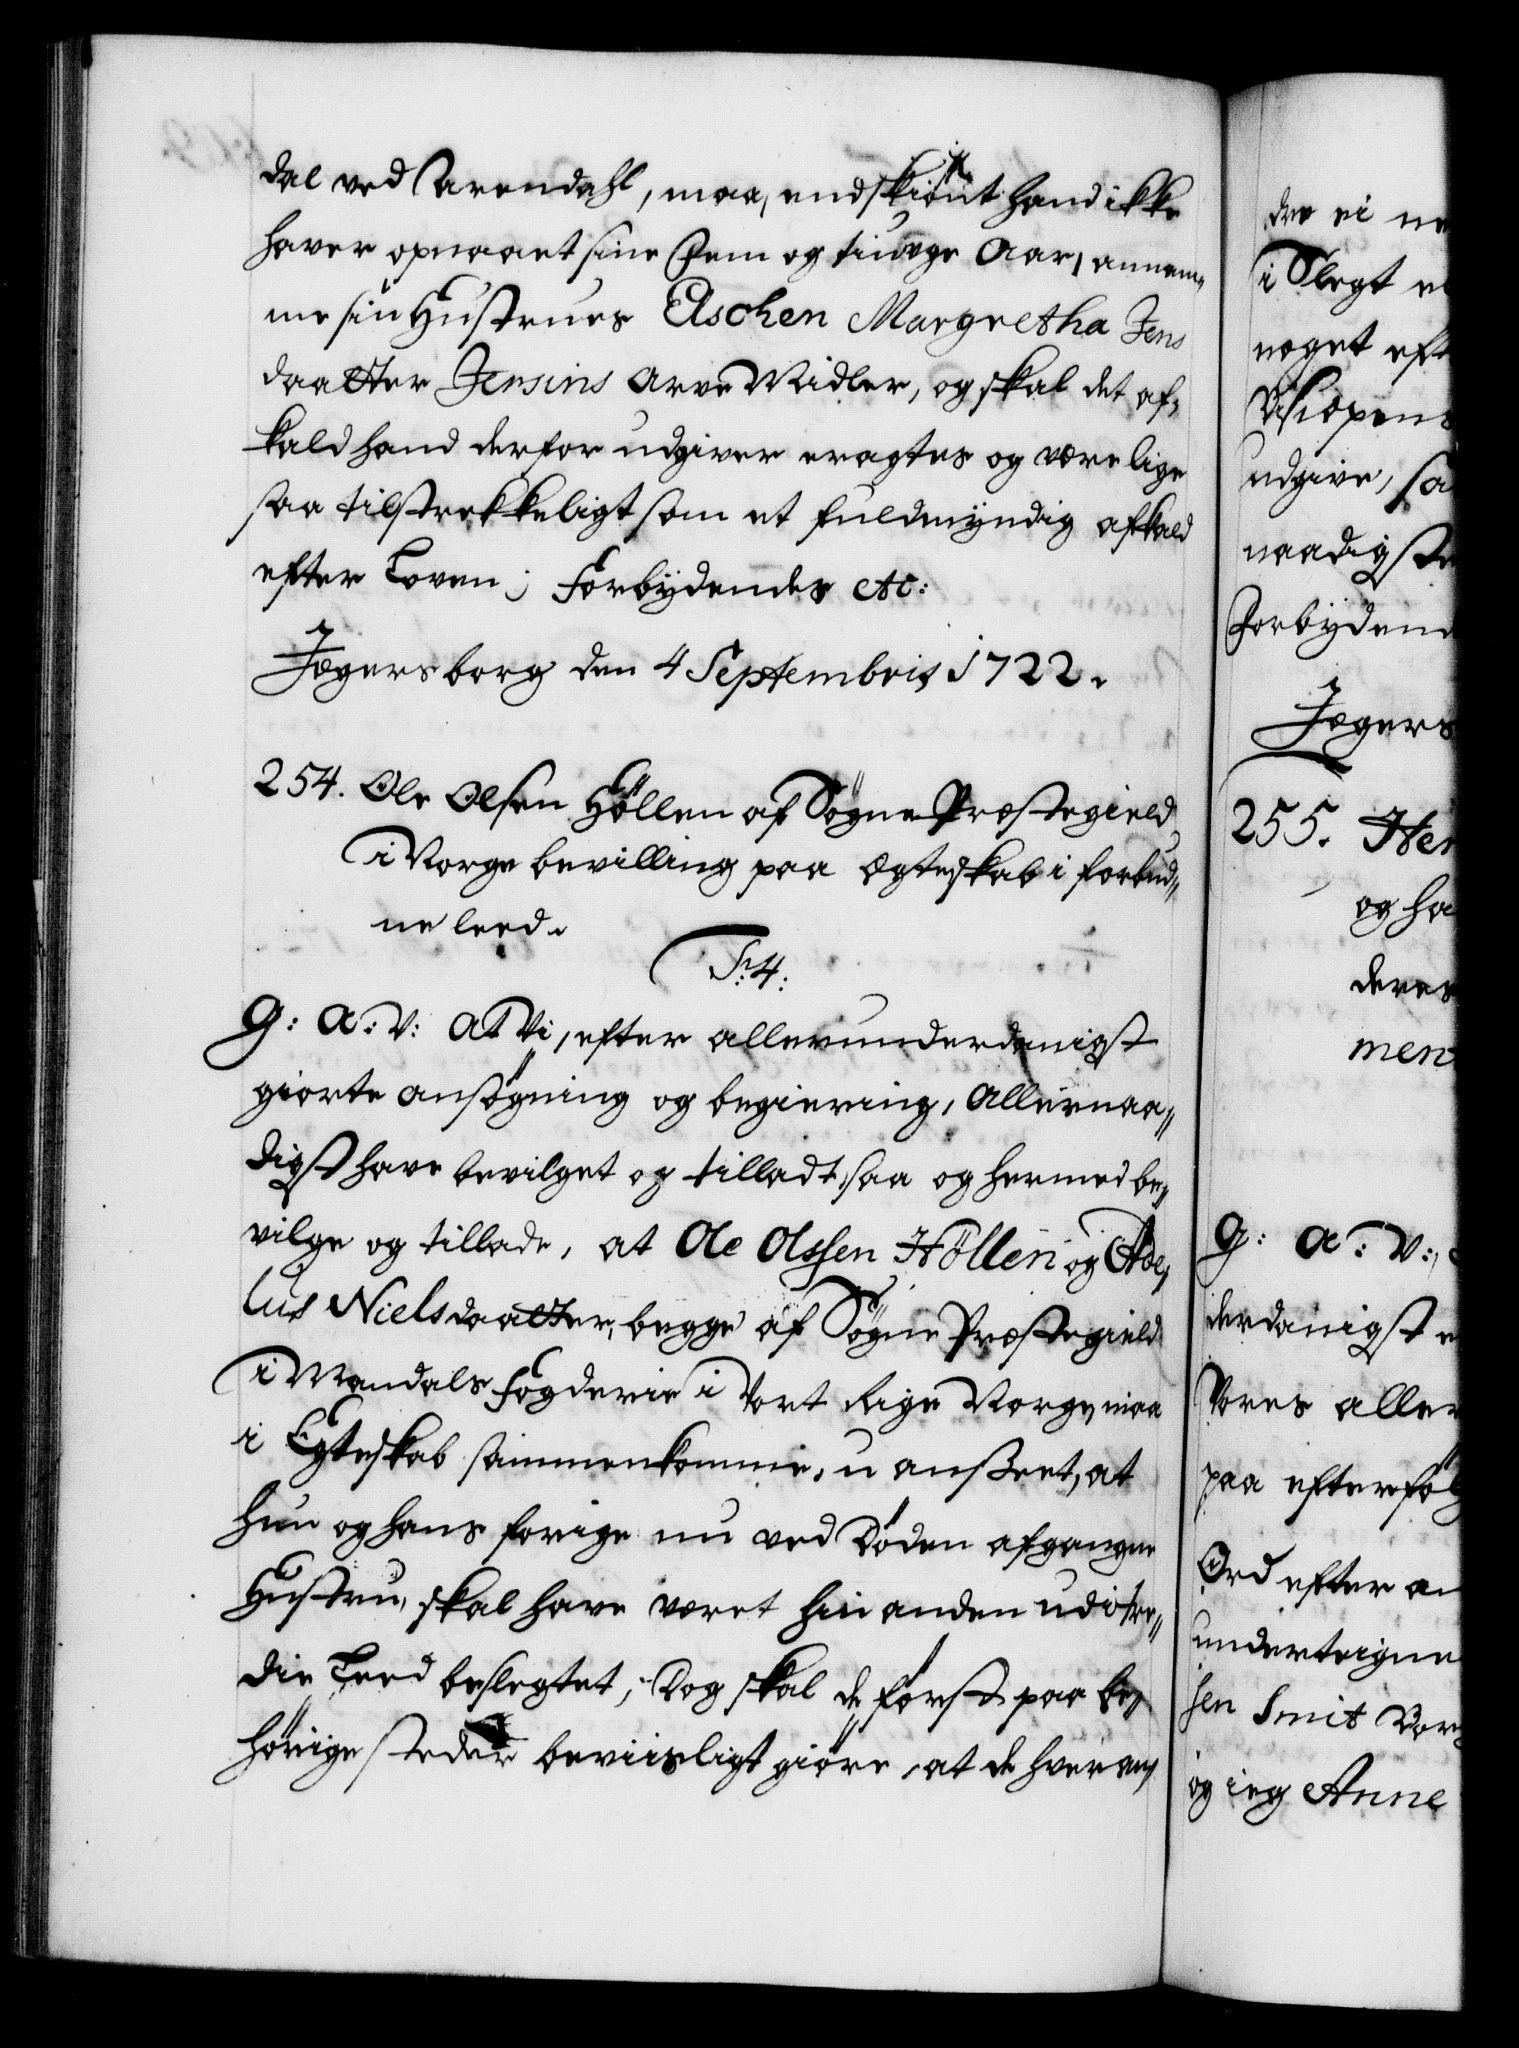 dal ved Arendahl, maa, endskiønt hand ikke
haver opnaaet sine Fem og tiuvge Aar, annam-
me sin Hustrues Elschen Margretha Jens
daatter Jensins Arve Midler, og skal det af-
kald hand derfor udgiver eragtes og være lige
saa tilstrekkeligt som et fuldmyndig afkald
efter Loven; Forbydendes etc:
Jægersborg den 4 Septembris 1722.
254. Ole Olsen Höllen af Søgne Præstegield
i Norge bevilling paa Ægteskab i forbud-
ne leed.
Sr. 4:
G: A: V: At Vi, efter allerunderdanigst
giorte ansøgning og begiering, Allernaa-
digst have bevilget og tilladt, saa og hermed be-
vilge og tillade, at Ole Olssen Höllen og Ade-
lus Nielsdaatter, begge af Søgne Præstegield
i Mandals Fogderie i Vort Rige Norge, maa
i Egteskab sammenkomme, u anseet, at
hun og hans forige nu ved Døden afgangne
Hustru, skal have været hin anden udi tre-
die Leed beslegtet; Dog skal de først paa be-
hørige steder beviisligt giøre, at de hveran-
dre ei ne
i Slegt e
noget eft
Bisꝛopens
udgive, sa
naadigste
Forbydend
Jægers
255. Her
og ha
deres
men
G: A: V:,
derdanigst e
Vores aller
paa efterføl
Ord efter an
underteigne
sen Smit Bor
og ieg Anne